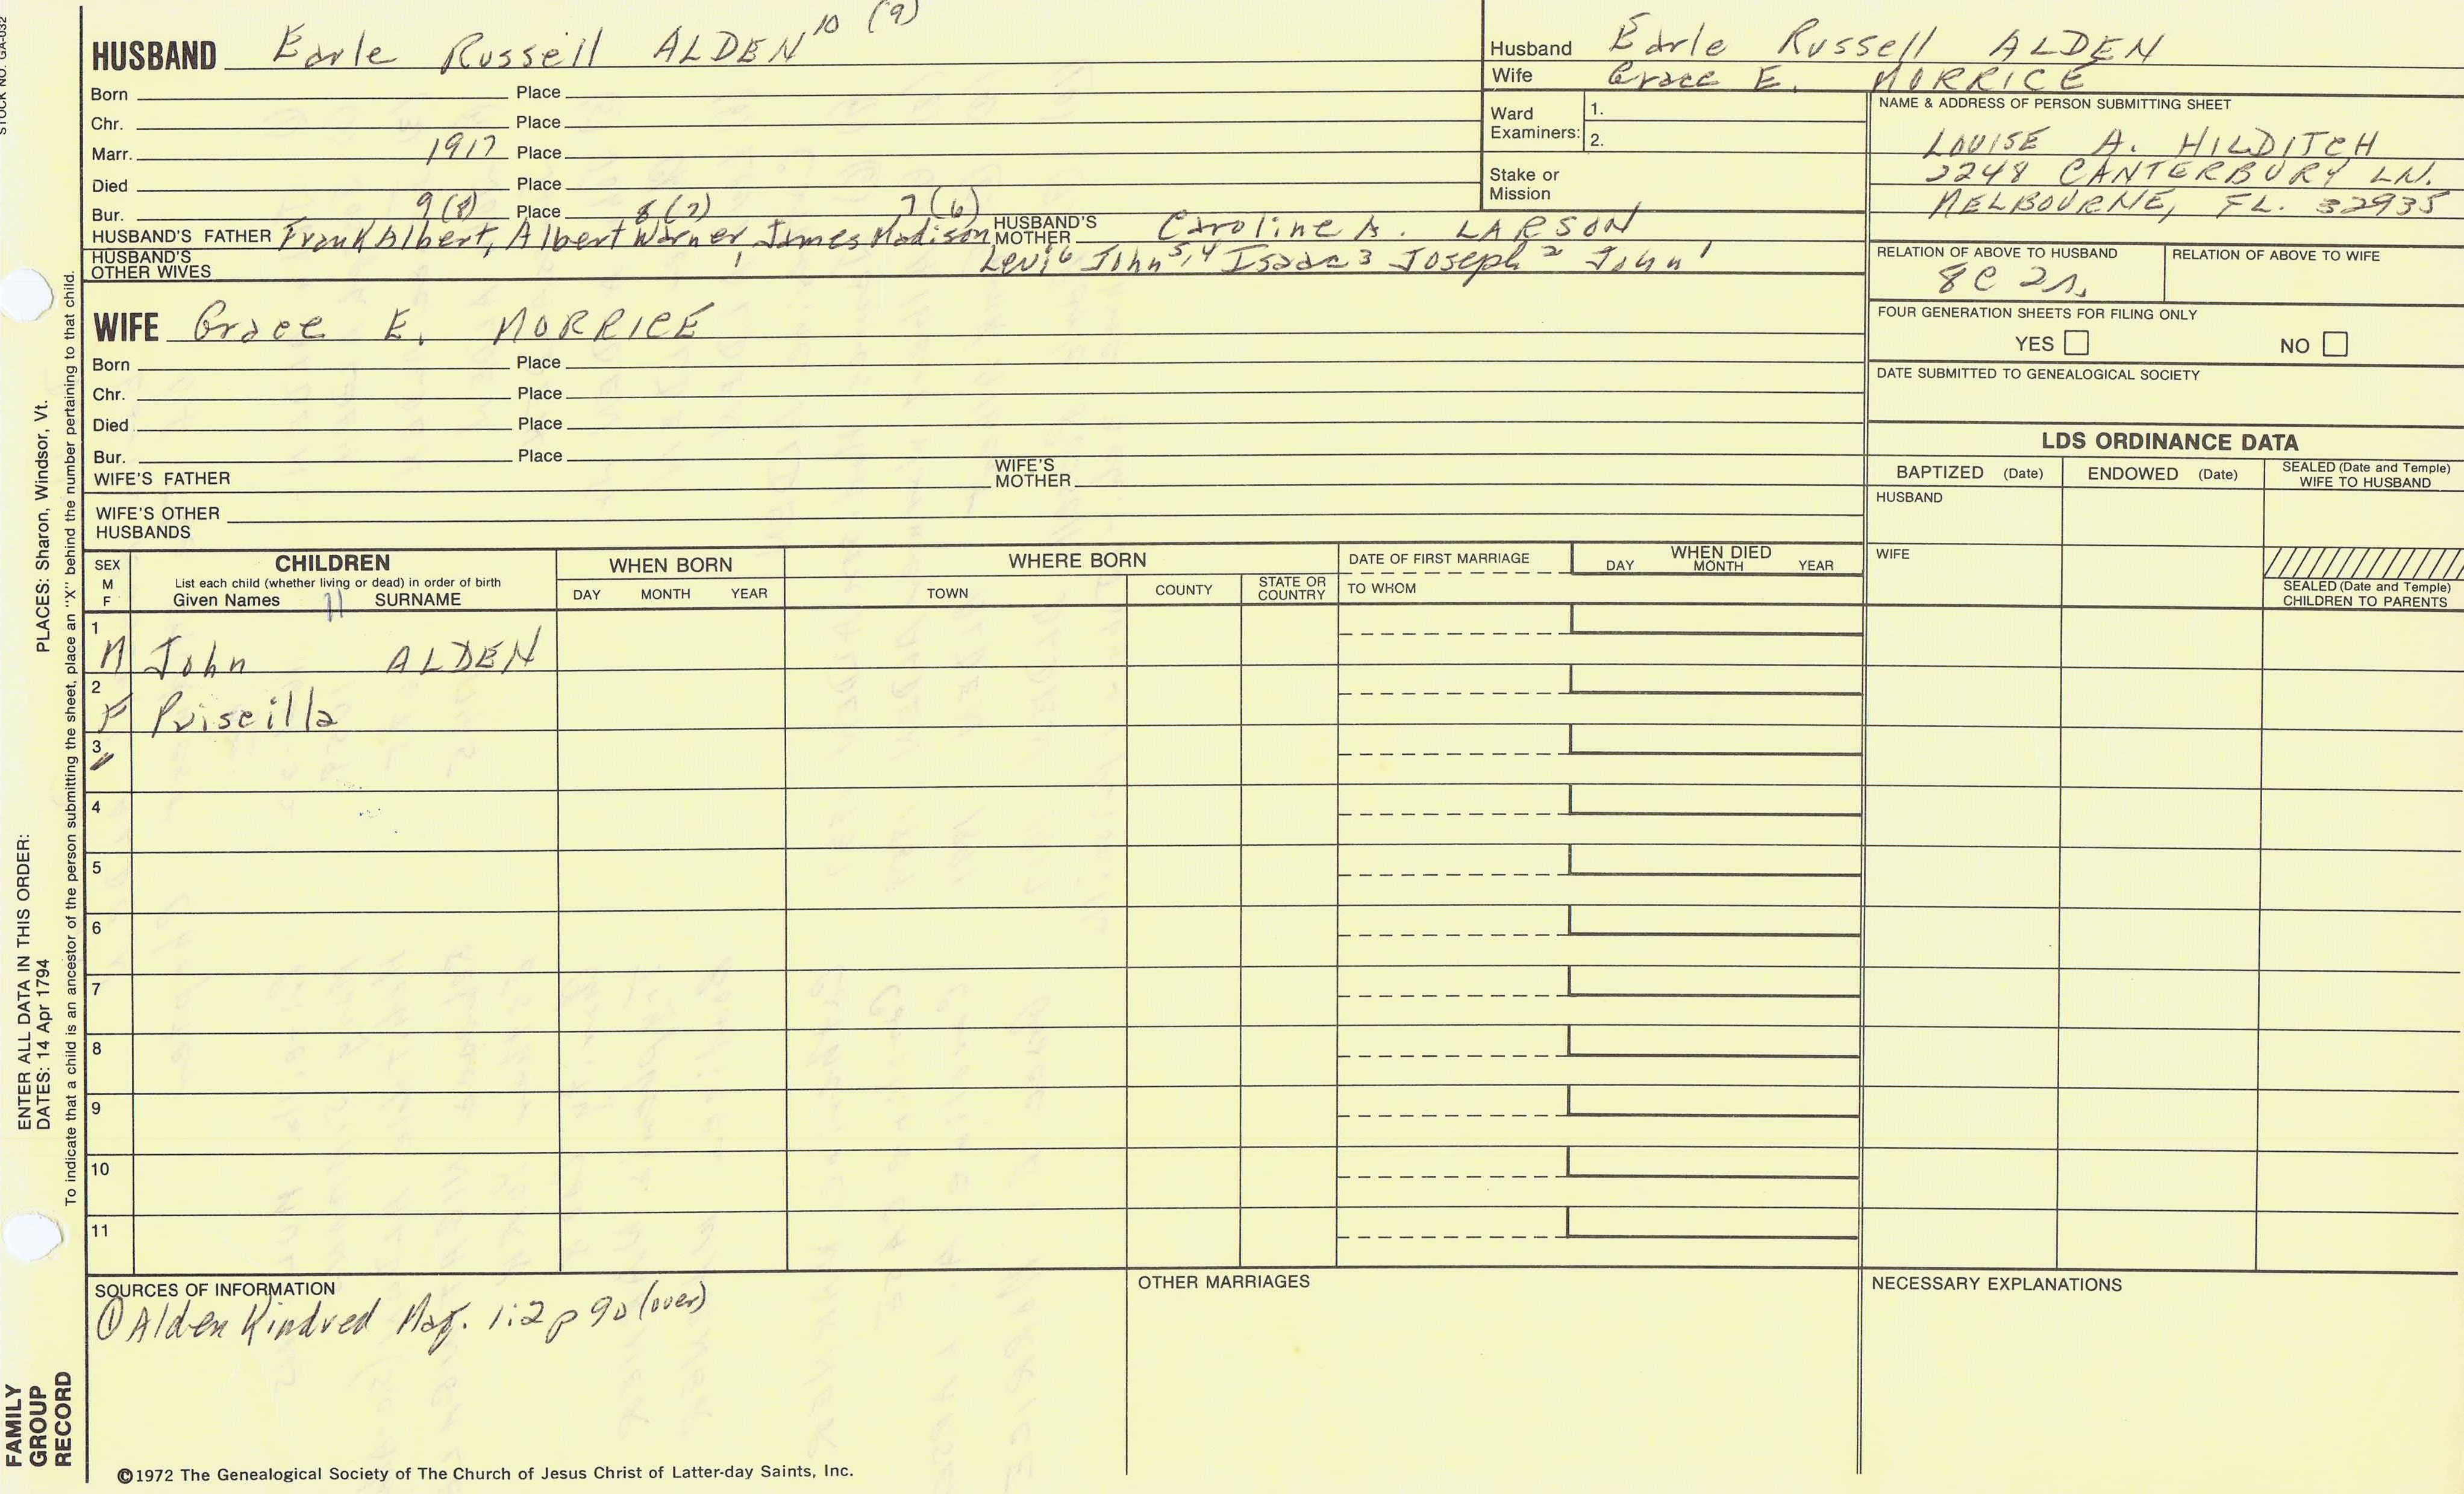 STOCK NO. GA-032
HUSBAND Earle Russell ALDEN 10 (9)
Born Place
Chr. Place
Marr. 1917 Place
Died Place
Bur. 9(8) Place 8(7) 7(6)
HUSBAND'S FATHER Frank Albert, Albert Warner, James Madison HUSBAND'S MOTHER Caroline A. LARSON
HUSBAND'S OTHER WIVES Levi 6 John 5,4 Isaac 3 Joseph 2 John 1
WIFE Grace E. MORRICE
Born Place
Chr. Place
Died Place
Bur. Place
WIFE'S FATHER WIFE'S MOTHER
WIFE'S OTHER
HUSBANDS
Husband Earle Russell ALDEN
Wife Grace E. MORRICE
Ward Examiners: 1.
2.
Stake or
Mission
NAME & ADDRESS OF PERSON SUBMITTING SHEET
LOUISE A. HILDITCH
2248 CANTERBURY LN.
MELBOURNE, FL. 32935
RELATION OF ABOVE TO HUSBAND RELATION OF ABOVE TO WIFE
8C 2r.
FOUR GENERATION SHEETS FOR FILING ONLY
YES NO
DATE SUBMITTED TO GENEALOGICAL SOCIETY
LDS ORDINANCE DATA
BAPTIZED (Date) ENDOWED (Date) SEALED (Date and Temple) WIFE TO HUSBAND
HUSBAND
WIFE
SEALED (Date and Temple)
CHILDREN TO PARENTS
SEX M F CHILDREN WHEN BORN WHERE BORN DATE OF FIRST MARRIAGE WHEN DIED
List each child (whether living or dead) in order of birth
Given Names 11 SURNAME DAY MONTH YEAR TOWN COUNTY STATE OR COUNTRY TO WHOM DAY MONTH YEAR
1 M John ALDEN
2 F Priscilla
3
4
5
6
7
8
9
10
11
SOURCES OF INFORMATION OTHER MARRIAGES NECESSARY EXPLANATIONS
① Alden Kindred Mag. 1:2 p 90 (over)
©1972 The Genealogical Society of The Church of Jesus Christ of Latter-day Saints, Inc.
FAMILY
GROUP
RECORD
ENTER ALL DATA IN THIS ORDER:
DATES: 14 Apr 1794
PLACES: Sharon, Windsor, Vt.
To indicate that a child is an ancestor of the person submitting the sheet, place an "X" behind the number pertaining to that child.